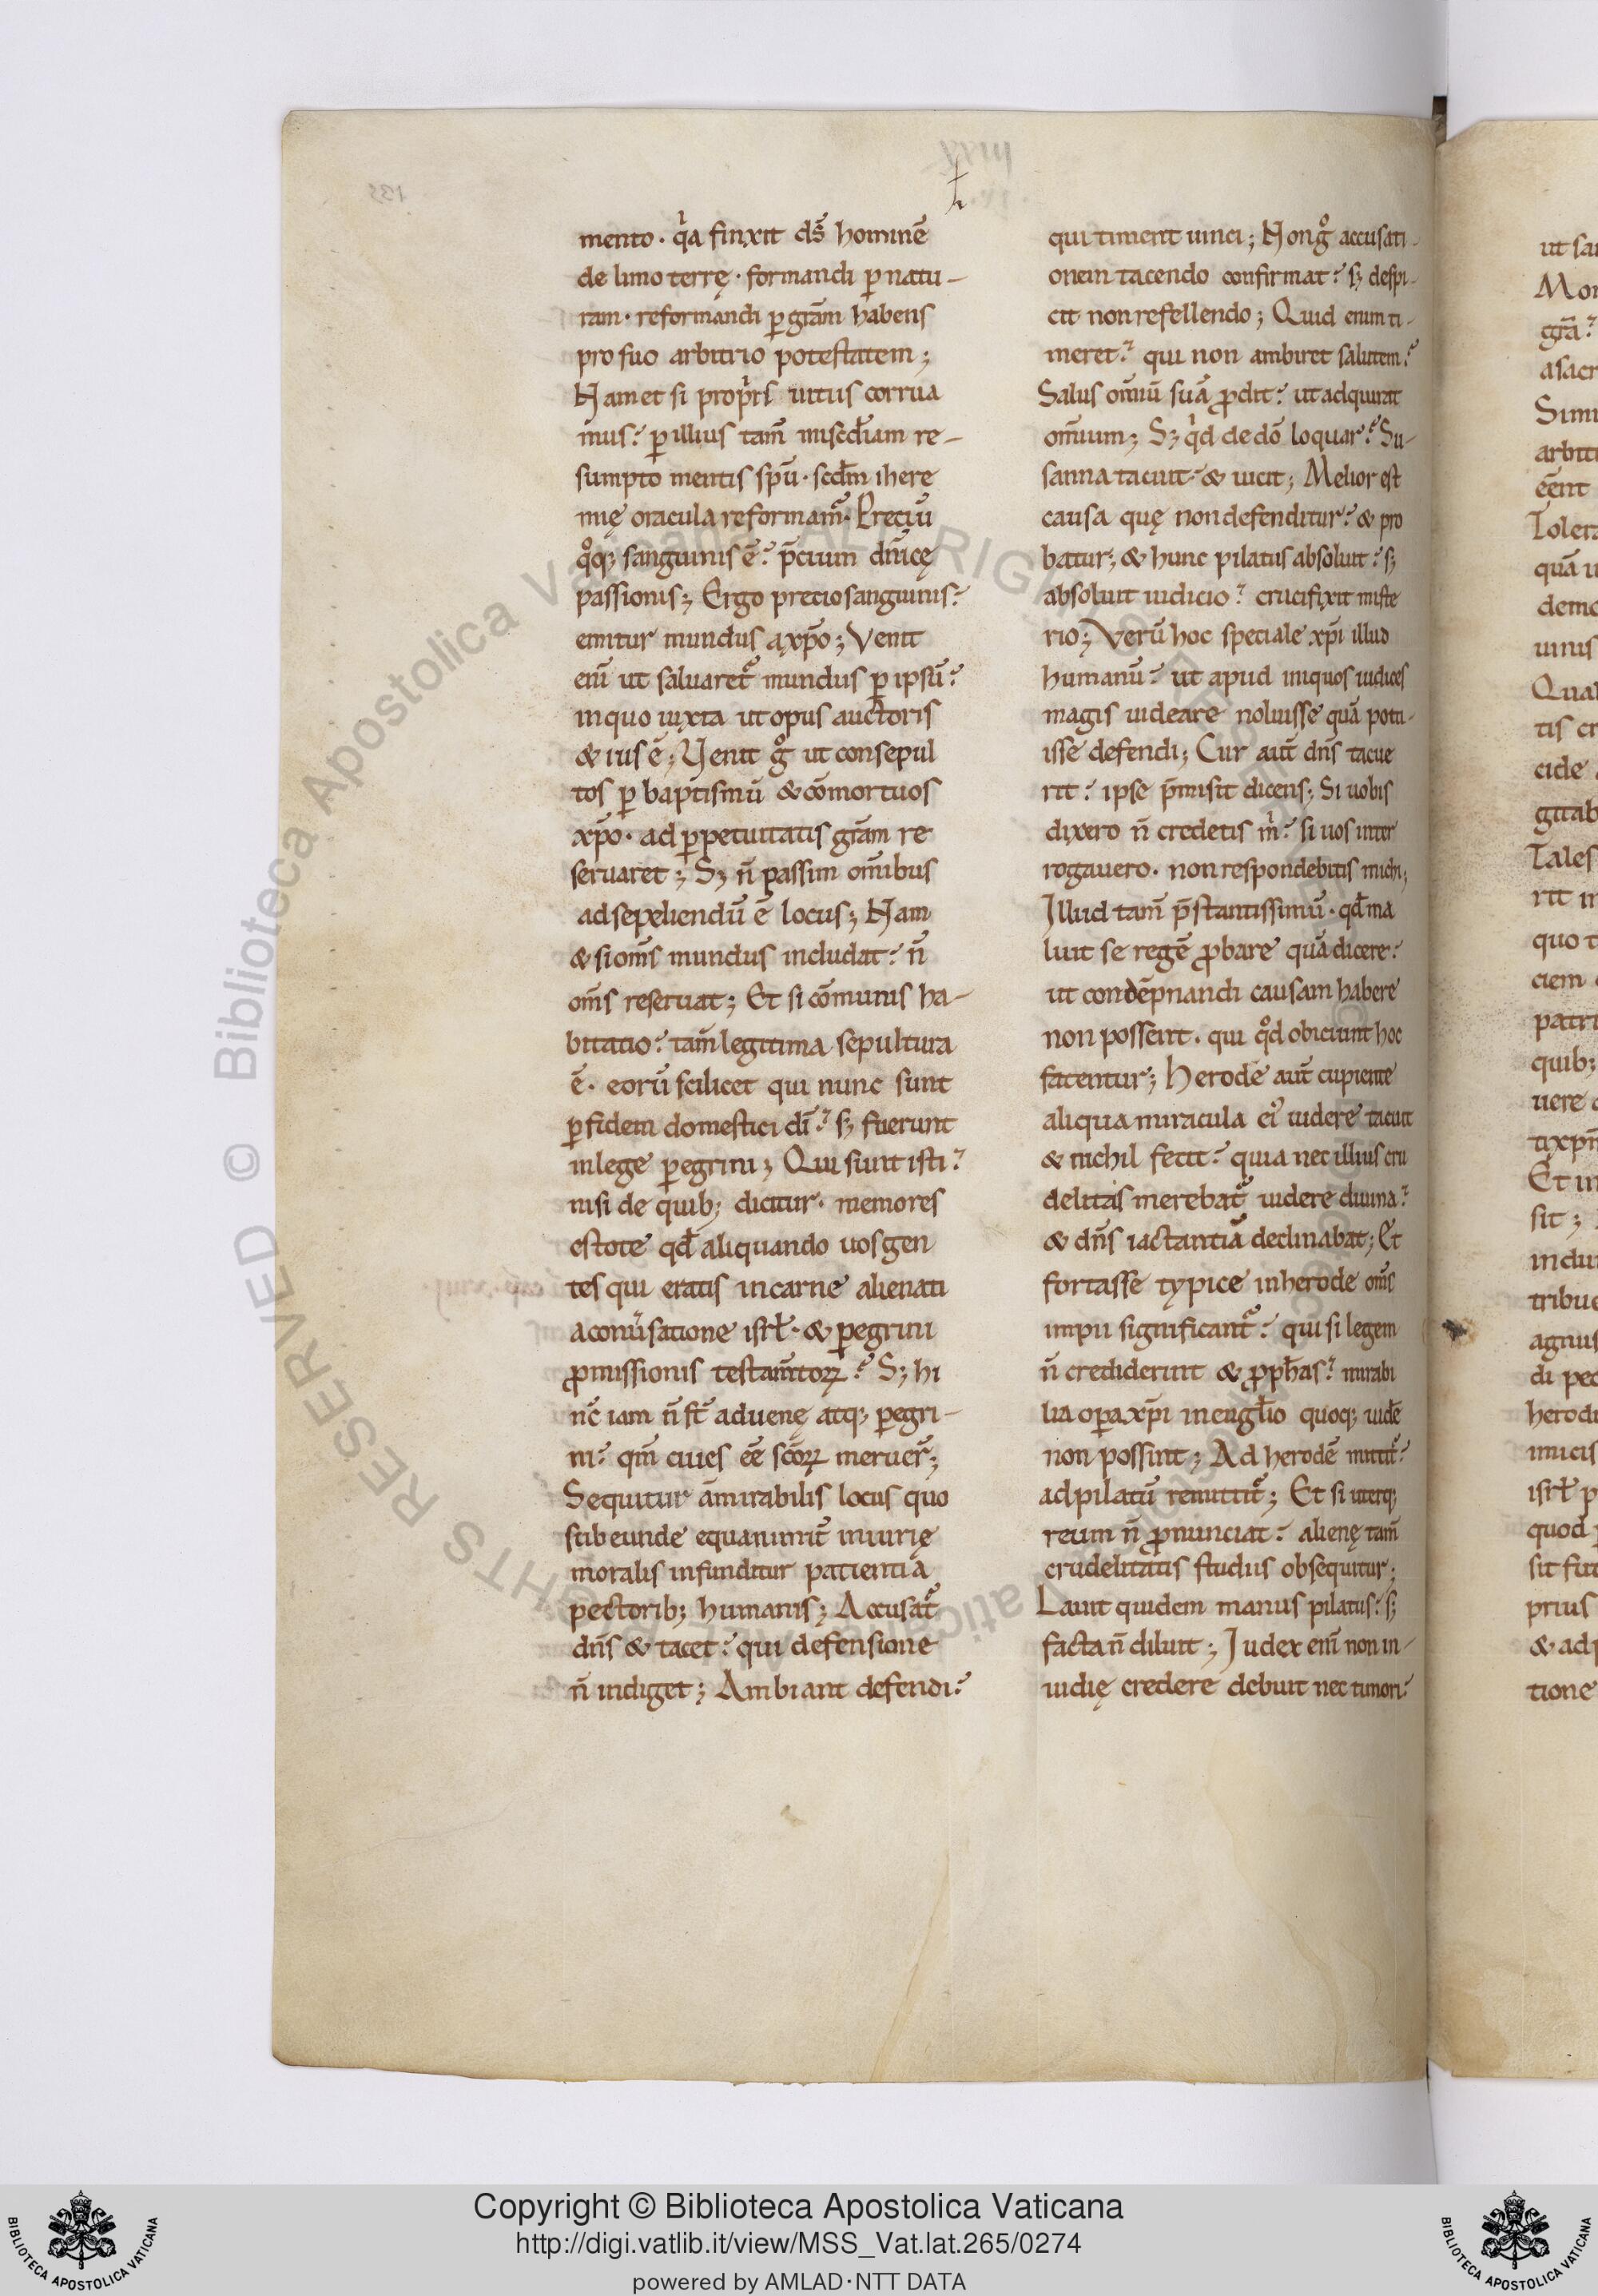 mento · qͥa finxit ds̄ hominē
de limo terrę · formandi ꝑ natu-
ram · reformandi ꝑ gr̄am habens
pro suo arbitrio potestatem ;
Nam et si propͥis uitiis corrua
mus? ꝑ illius tam̄ misēdiam re-
sumpto mentis sp̄u · scd̄m ihere
mię oracula reformam᷑. Preciū
qͦq; sanguinis ē? p̄cium dn̄icę
passionis ; Ergo precio sanguinis?
emitur mundus a xp̄o ; Venit
eni̅ ut saluaret᷑ mundus ꝑ ipsū?
in quo iuxta ut opus auctoris
& ius ē ; Venit gͦ ut consepul
tos ꝑ baptismū & cōmortuos
xp̄o · ad ꝑpetuitatis gr̄am re
seruaret ; S; n̄ passim om̄ibus
ad sepeliendū ē locus ; Nam
& si om̄s mundus includat? n̄
om̄s reseruat ; Et si cōmunis ha-
bitatio? tam̄ legitima sepultura
ē · eorū scilicet qui nunc sunt
ꝑ fidem domestici dī? s; fuerunt
in lege ꝑegrini ; Qui sunt isti?
nisi de quib; dicitur · memores
estote qd̄ aliquando uos gen
tes qui eratis in carne alienati
a conuͥsatione isrl̄ · & ꝑegrini
ꝓmissionis testam̄toꝝ? S; hi
nc̄ iam n̄ st̄ aduenę atq; ꝑegri-
ni? qm̄ ciues eē scōꝝ meruer̄ ;
Sequitur āmirabilis locus quo
subeunde equanimit̄ iniurię
moralis infunditur patientia
pectorib; humanis ; Accusat᷑
dn̄s & tacet? qui defensione
n̄ indiget ; Ambiant defendi?
qui timent uinci ; Non gͦ accusati-
onem tacendo confirmat? s; despi-
cit non refellendo ; Quid enim ti-
meret? qui non ambiret salutem?
Salus om̄iū suā ꝓdit? ut adquirat
om̄ium ; S; qͥd de dō loquar? Su-
sanna tacuit? & uicit ; Melior est
causa quę non defenditur? & pro
batur ; & hunc pilatus absoluit? s;
absoluit iudicio? crucifixit miste
rio ; Verū hoc speciale xp̄i illud
humanū? ut apud iniquos iudices
magis uideare noluisse quā potu-
isse defendi ; Cur aut̄ dn̄s tacue
rit? ipse p̄misit dicens ; Si uobis
dixero n̄ credetis mͥ? si uos inter
rogauero · non respondebitis michi ;
Illud tam̄ p̄stantissimū · qd̄ ma
luit se regē ꝓbare quā dicere?
ut condēpnandi causam habere
non possent · qui qͦd obiciunt hoc
fatentur ; Herode aut̄ cupiente
aliqua miracula ei᷒ uidere tacuit
& nichil fecit? quia nec illius cru
delitas merebat᷑ uidere diuina?
& dn̄s iactantiā declinabat ; Et
fortasse typice in herode om̄s
impii significant᷑? qui si legem
n̄ crediderint & ꝓph̄as? mirabi
lia oꝑa xp̄i in eugl̄io quoq; uidē
non possint ; Ad herodē mittit᷑?
ad pilatū remittit᷑ ; Et si uterq;
reum n̄ ꝓnunciat? alienę tam̄
crudelitatis studiis obsequitur ;
Lauit quidem manus pilatus? s;
facta n̄ diluit ; Iudex eni̅ non in-
uidię credere debuit nec timori?
ut sa
Mor
gr̄a?
a sacr
Simi
arbit
eēnt
Toler
quā u
demo
uinis
Qua
tis cr
cide
gitab
Tales
rit in
quo t
ciem
patri
quib;
uere
Et in
sit ;
indu
tribue
agnus
di pec
herodi
imicis
isrl̄ p
quod
sit fu
prius
& ad
tione
© Biblioteca Apostolica Vaticana ALL RIGHTS RESERVED
Copyright © Biblioteca Apostolica Vaticana
http://digi.vatlib.it/view/MSS_Vat.lat.265/0274
powered by AMLAD·NTT DATA
BIBLIOTECA APOSTOLICA VATICANA
BIBLIOTECA APOSTOLICA VATICANA